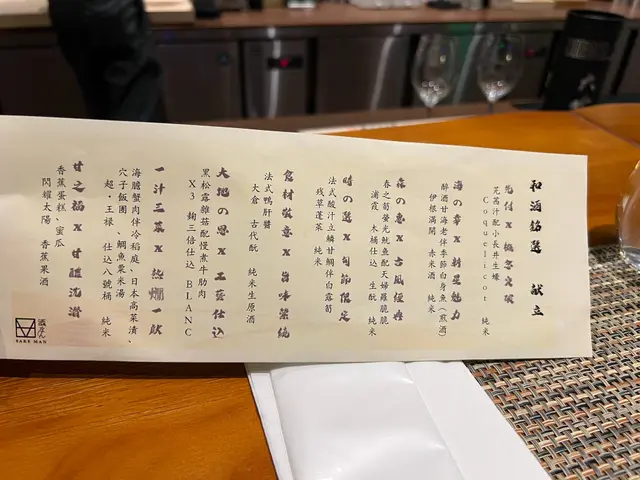 和酒銘選 献立
先付 x 概念突破
芫荽汁配小長井生蠔
Coquelicot 純米
海の幸 x 新星魅力
醉酒甘海老伴季節白身魚(煎酒)
伊根満開 赤米酒 純米
花の恵 x 古風経典
春之箭螢光魷魚配天婦羅脆脆
浦霞 木桶仕込 生酛 純米
時の選 x 旬節限定
法式酸汁立鱗甘鯛伴白露筍
残草蓬莱 純米
食材故意 x 旨味築構
法式鴨肝醬
大倉 古代酛 純米生原酒
大地の恩 x 工藝仕込
黑松露雜菇配慢煮牛肋肉
X3 麹三倍仕込 BLANC
一汁三菜 x 純燗一献
海膽蟹肉伴冷稻庭、日本高菜漬、
穴子飯團、鯛魚粟米湯
超・王禄 仕込八號桶 純米
甘之福 x 甘醸沈潜
香蕉蛋糕、蜜瓜
閃耀太陽 香蕉果酒
酒文
SAKE MAN